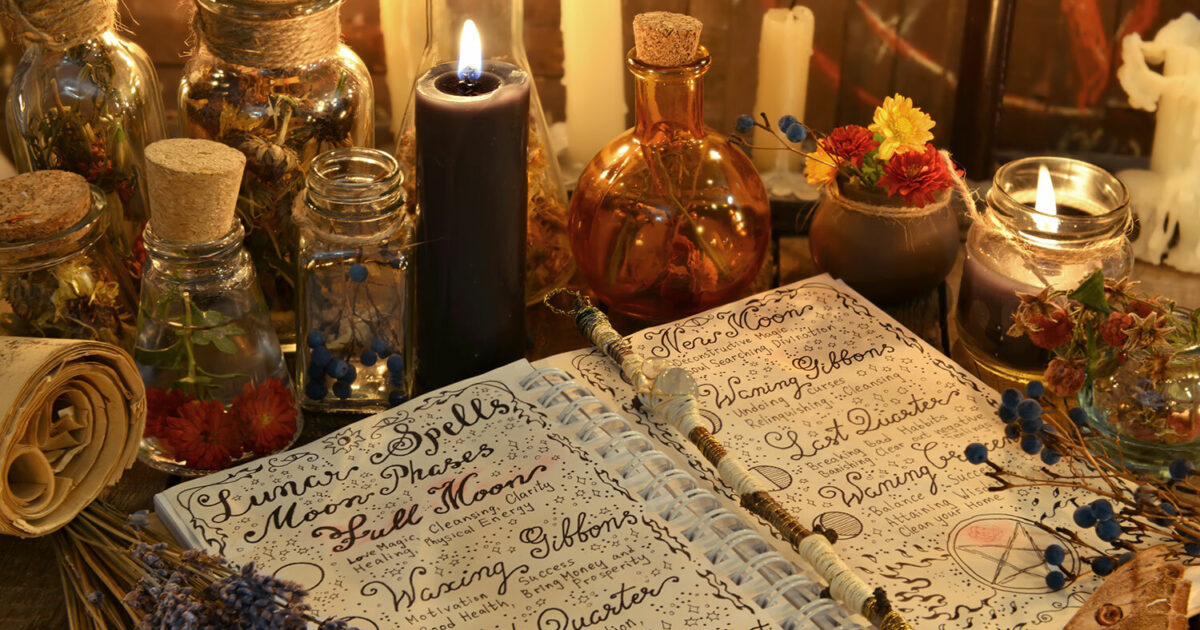 Lunar Spells
Moon Phases
Full Moon
Love Magic, Cleansing, Clarity
Healing, Physical Energy
Waxing Gibbons
Motivation, Success and
Good Health, Bring Money
Prosperity
Quarter
New Moon
Deconstructive Magic
Soul Searching Divination
Waning Gibbons
Undoing Curses
Relinquishing, Cleansing,
Last Quarter
Breaking Bad Habits
Banishing
Waning
Balance
Attaining
Clean your Home